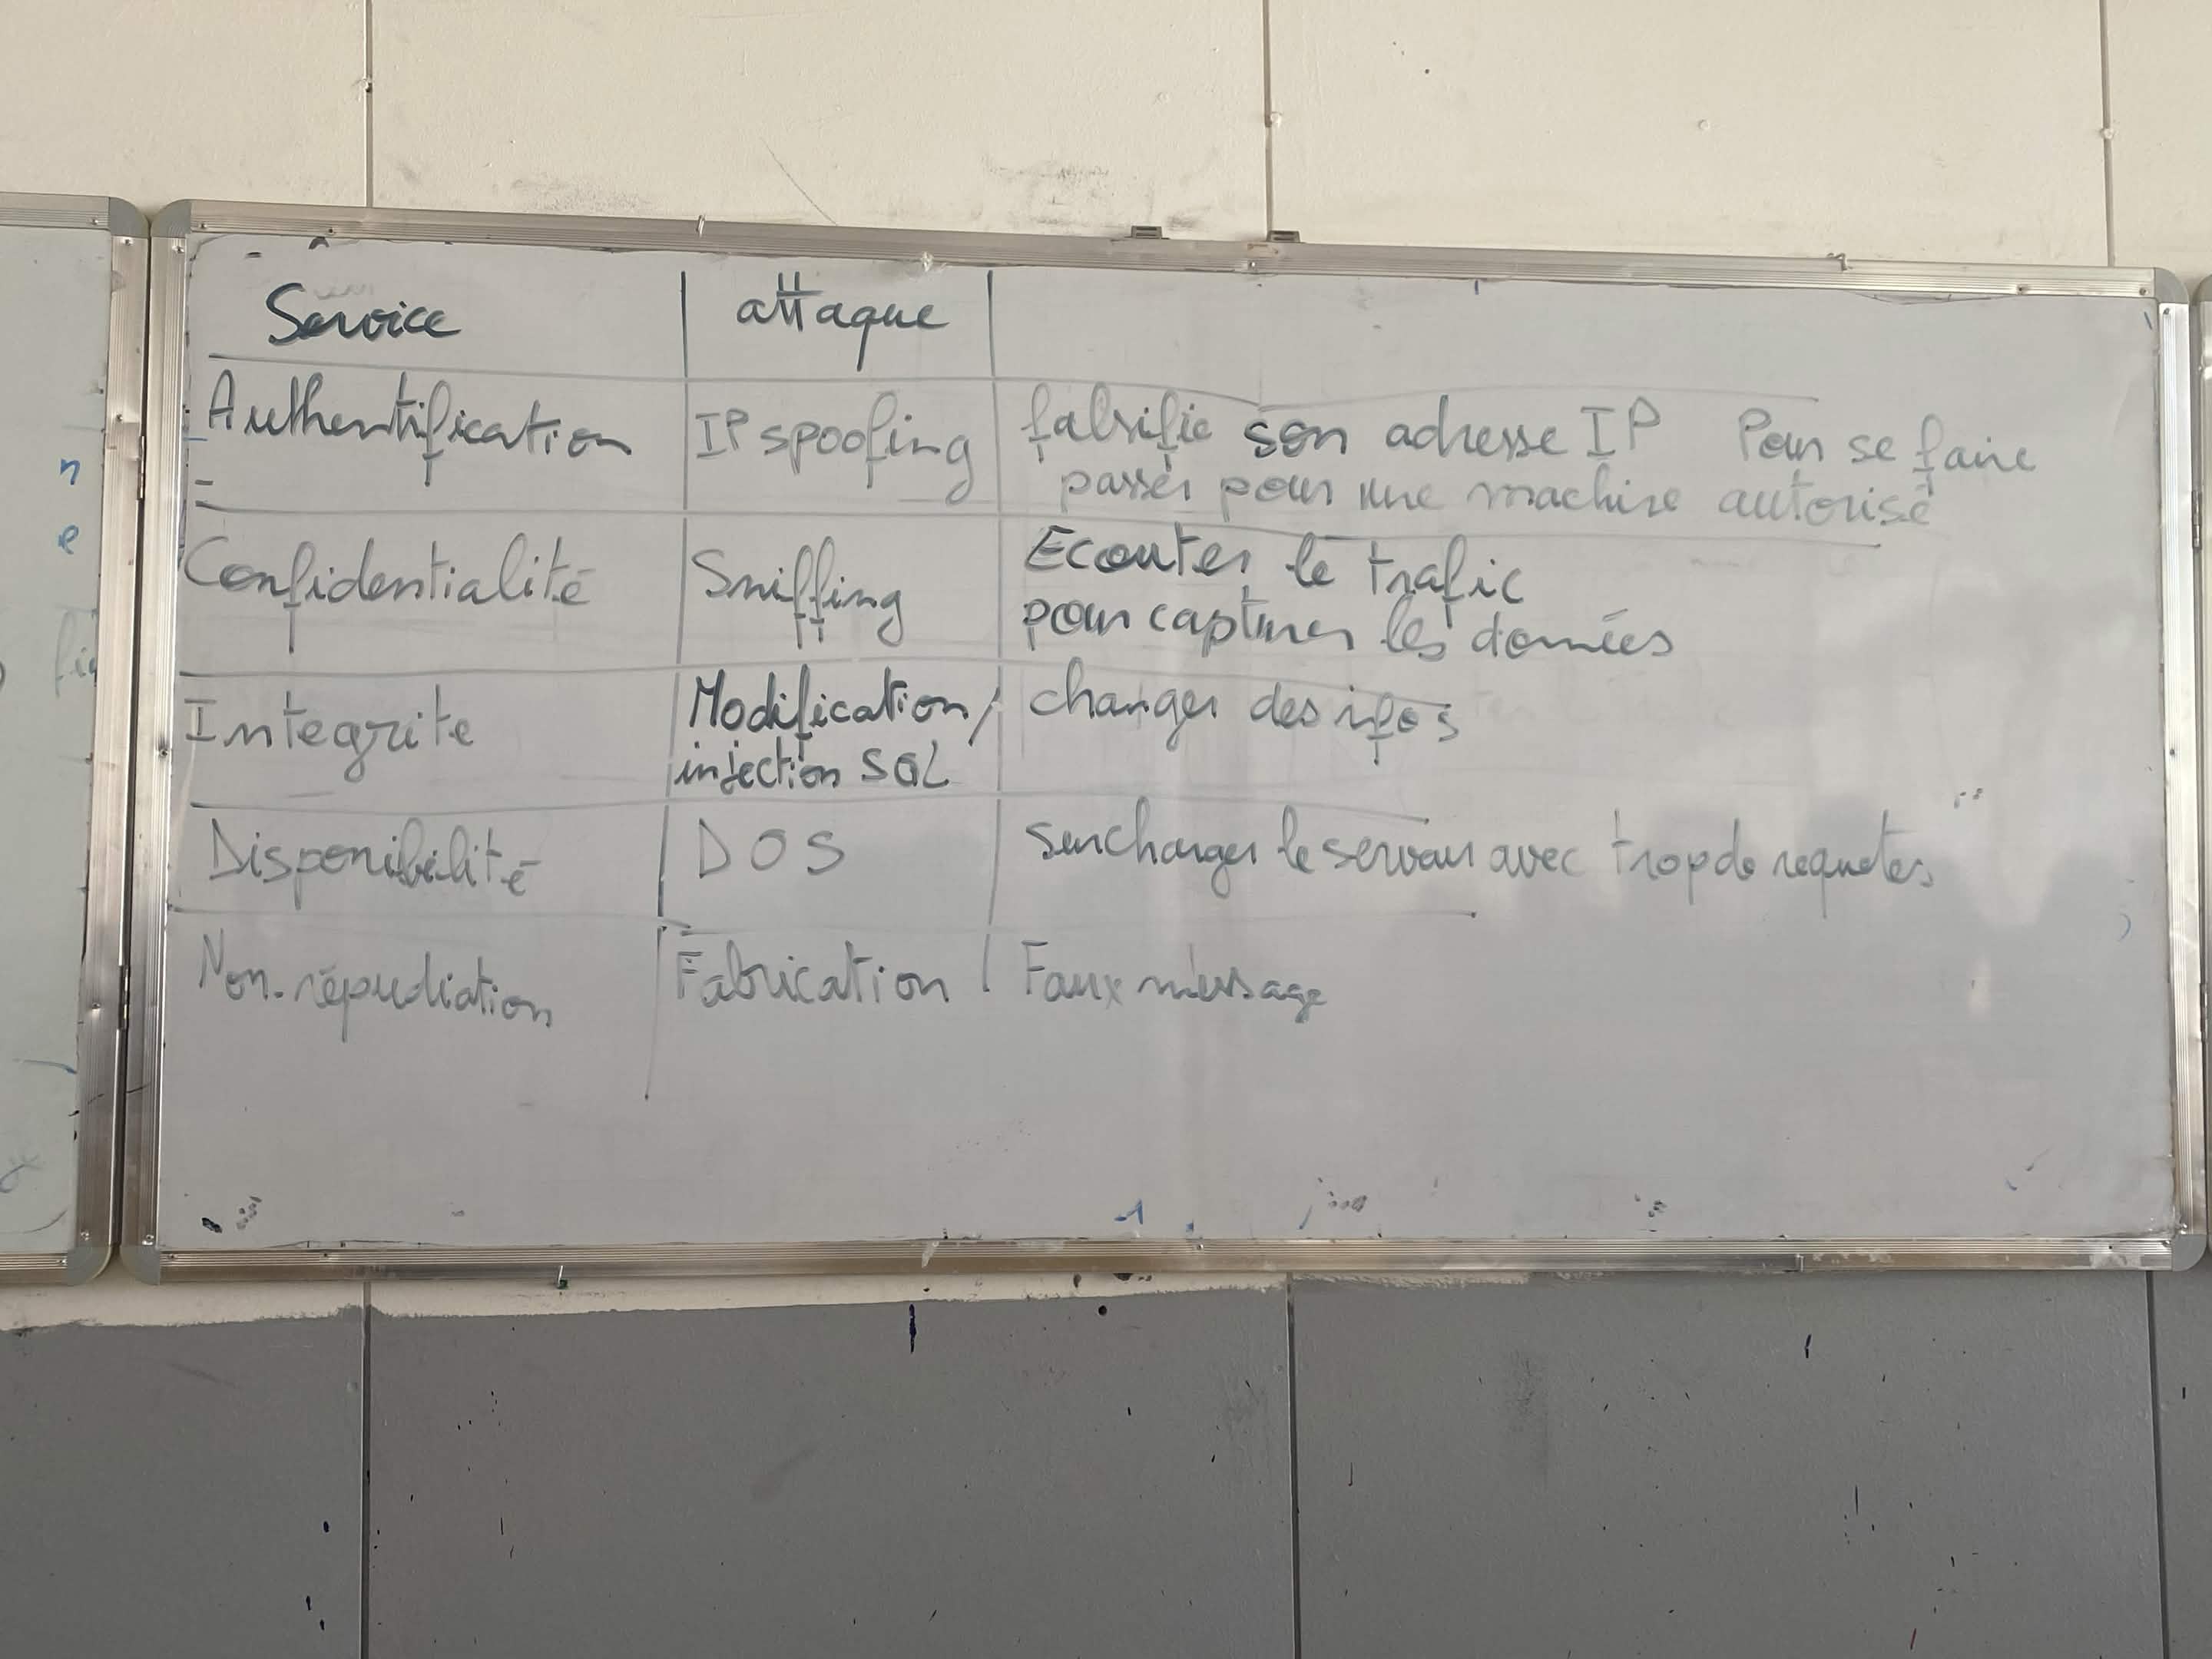 Service attaque
Authentification IP spoofing falsifie son adresse IP Pour se faire
passer pour une machine autorisé
Confidentialité Sniffing Ecouter le trafic
pour capturer les données
Integrite Modification/ changer des ifos
injection SQL
Disponibilité DOS surcharger le serveur avec trop de requetes
Non-répudiation Fabrication Faux message
n
e